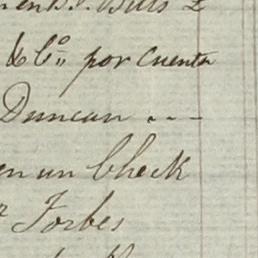 Bills £
& Co. por cuenta
Duncan . --
en un Check
Forbes